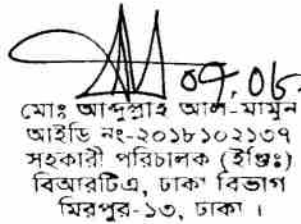 ০৭.০৮
মোঃ আব্দুল্লাহ আল-মামুন
আইডি নং-২০১৮১০২১৩৭
সহকারী পরিচালক (ইঞ্জিঃ)
বিআরটিএ, ঢাকা বিভাগ
মিরপুর-১৩, ঢাকা ।